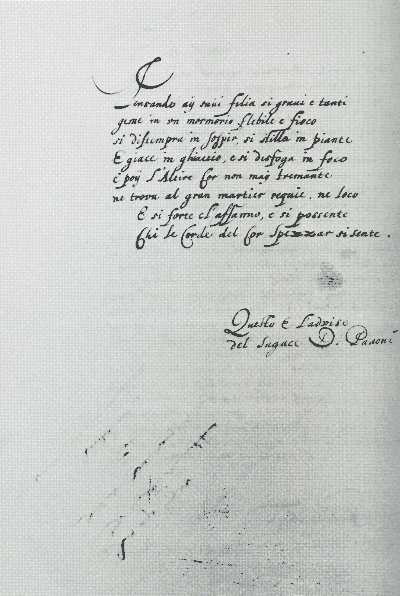 Pensando aỹ suoi filia si graui e tanti
geme in un mormorio flebile e fioco
si distempra in sospir, si stilla in piante
E giace in ghiaccio, e si disfoga in foco
e poỹ l'Altre Cor non maj tremante
ne trova al gran martier requie, ne loco
E si forte el'affanno, e si possente
Chi le Corde del Cor Spezzar si sente.
Questo è
del sugace D. Pavoni